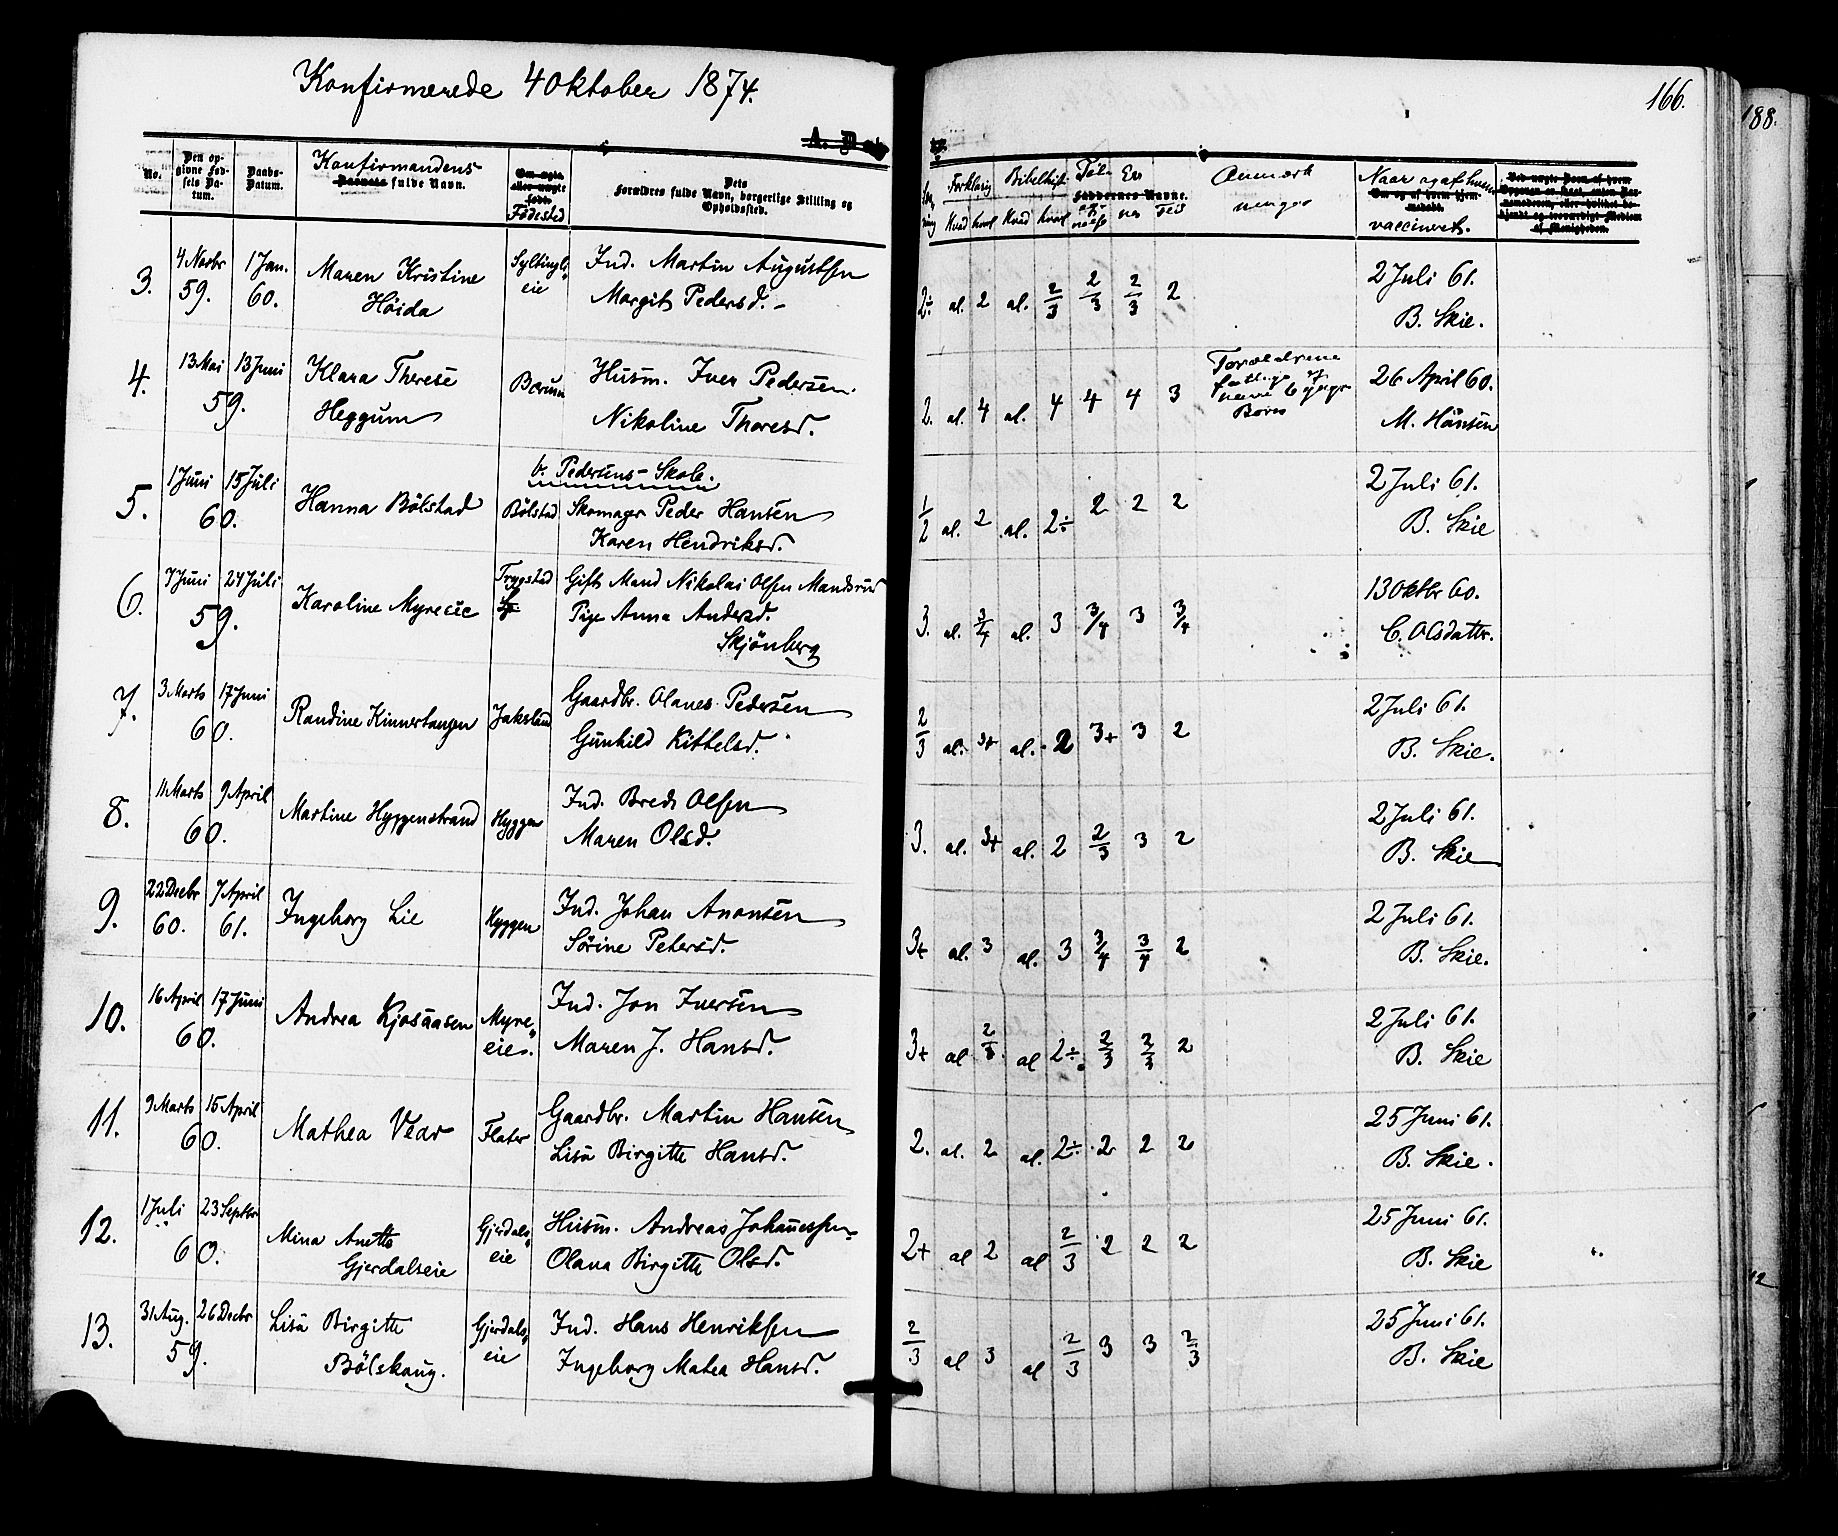 Konfirmerede 4 Oktober 1874.
166.
188.
No. Den opgivne Fødsels Datum. Daabs-Datum. Konfirmandens fulde Navn. Fødested Dets Forældres fulde Navn, borgerlige Stilling og Opholdssted.
Forklarig Bibelhist. Anmærkninger Naar og af hvem vaccineret.
Kvad kval Kvad kval
3. 4 Novbr 59. 1 Jan. 60. Maren Kristine Høida Syltingli eie Ind. Martin Augustsen
Margit Pedersd. -
2÷ al. 2 al. 2/3 2/3 2/3 2 2 Juli 61. B. Skie.
4. 13 Mai 13 Juni 59. Klara Therese Heggum Berum Husm. Iver Pedersen.
Nikoline Thoresd.
2. al. 4 al. 4 4 4 3 Forældrene 6 yngre Børn 26 April 60. M. Hansen
b. Pedersens-Skole.
5. 1 Juni 15 Juli 60. Hanna Bölstad Bölstad Skomager Peder Hansen
Karen Hendriksd.
1/2 al. 2 al. 2÷ 2 2 2 2 Juli 61. B. Skie
6. 7 Juni 24 Juli 59. Karoline Myreeie Trygstad Gift Mand Nikolai Olsen Mandsrud
Pige Anna Andersd.
Skjönberg
3. al. 3/4 al. 3 3/4 3 3/4 13 Oktbr 60. C. Olsdattr.
7. 3 Marts 17 Juni 60. Randine Kinnertangen Jaksland Gaardbr. Olaves Pedersen
Gunhild Kittelsd.
2/3 al. 3+ al. 2 3+ 3 2 2 Juli 61. B. Skie.
8. 11 Marts 9 April 60. Martine Hyggenstrand Hyggen Ind. Brede Olsen
Maren Olsd.
3. al. 3+ al. 2 2/3 3 2 2 Juli 61. B. Skie
9. 22 Decbr 60. 7 April 61. Ingeborg Lie Hyggen Ind. Johan Aronsen
Sörine Petersd.
3+ al. 3 al. 3 3/4 3/4 2 2 Juli 61. B. Skie.
10. 16 April 17 Juni 60. Andrea Kjosaasen Myre eie. Ind. Jon Iversen
Maren J. Hansd.
3+ al 2/3 al 2÷ 2/3 2/3 2 2 Juli 61. B. Skie
11. 9 Marts 15 April 60. Mathea Vear Flater Gaardbr. Martin Hansen
Lisa Birgitte Hansd.
2. al. 2 al. 2÷ 2 2 2 25 Juni 61. B. Skie.
12. 1 Juli 23 Septbr 60. Mina Anette Gjerdalseie Gjerdals eie Husm. Andreas Johannessen
Olava Birgitte Olsd.
2+ al 2 al 2/3 2 2 2 25 Juni 61. B. Skie
13. 31 Aug. 26 Decbr 59. Lisa Birgitte Bölskaug. Gjerdals eie Ind. Hans Henriksen
Ingeborg Matea Hansd.
2/3 al 3 al 2/3 3 3 2/3 25 Juni 61. B. Skie
12